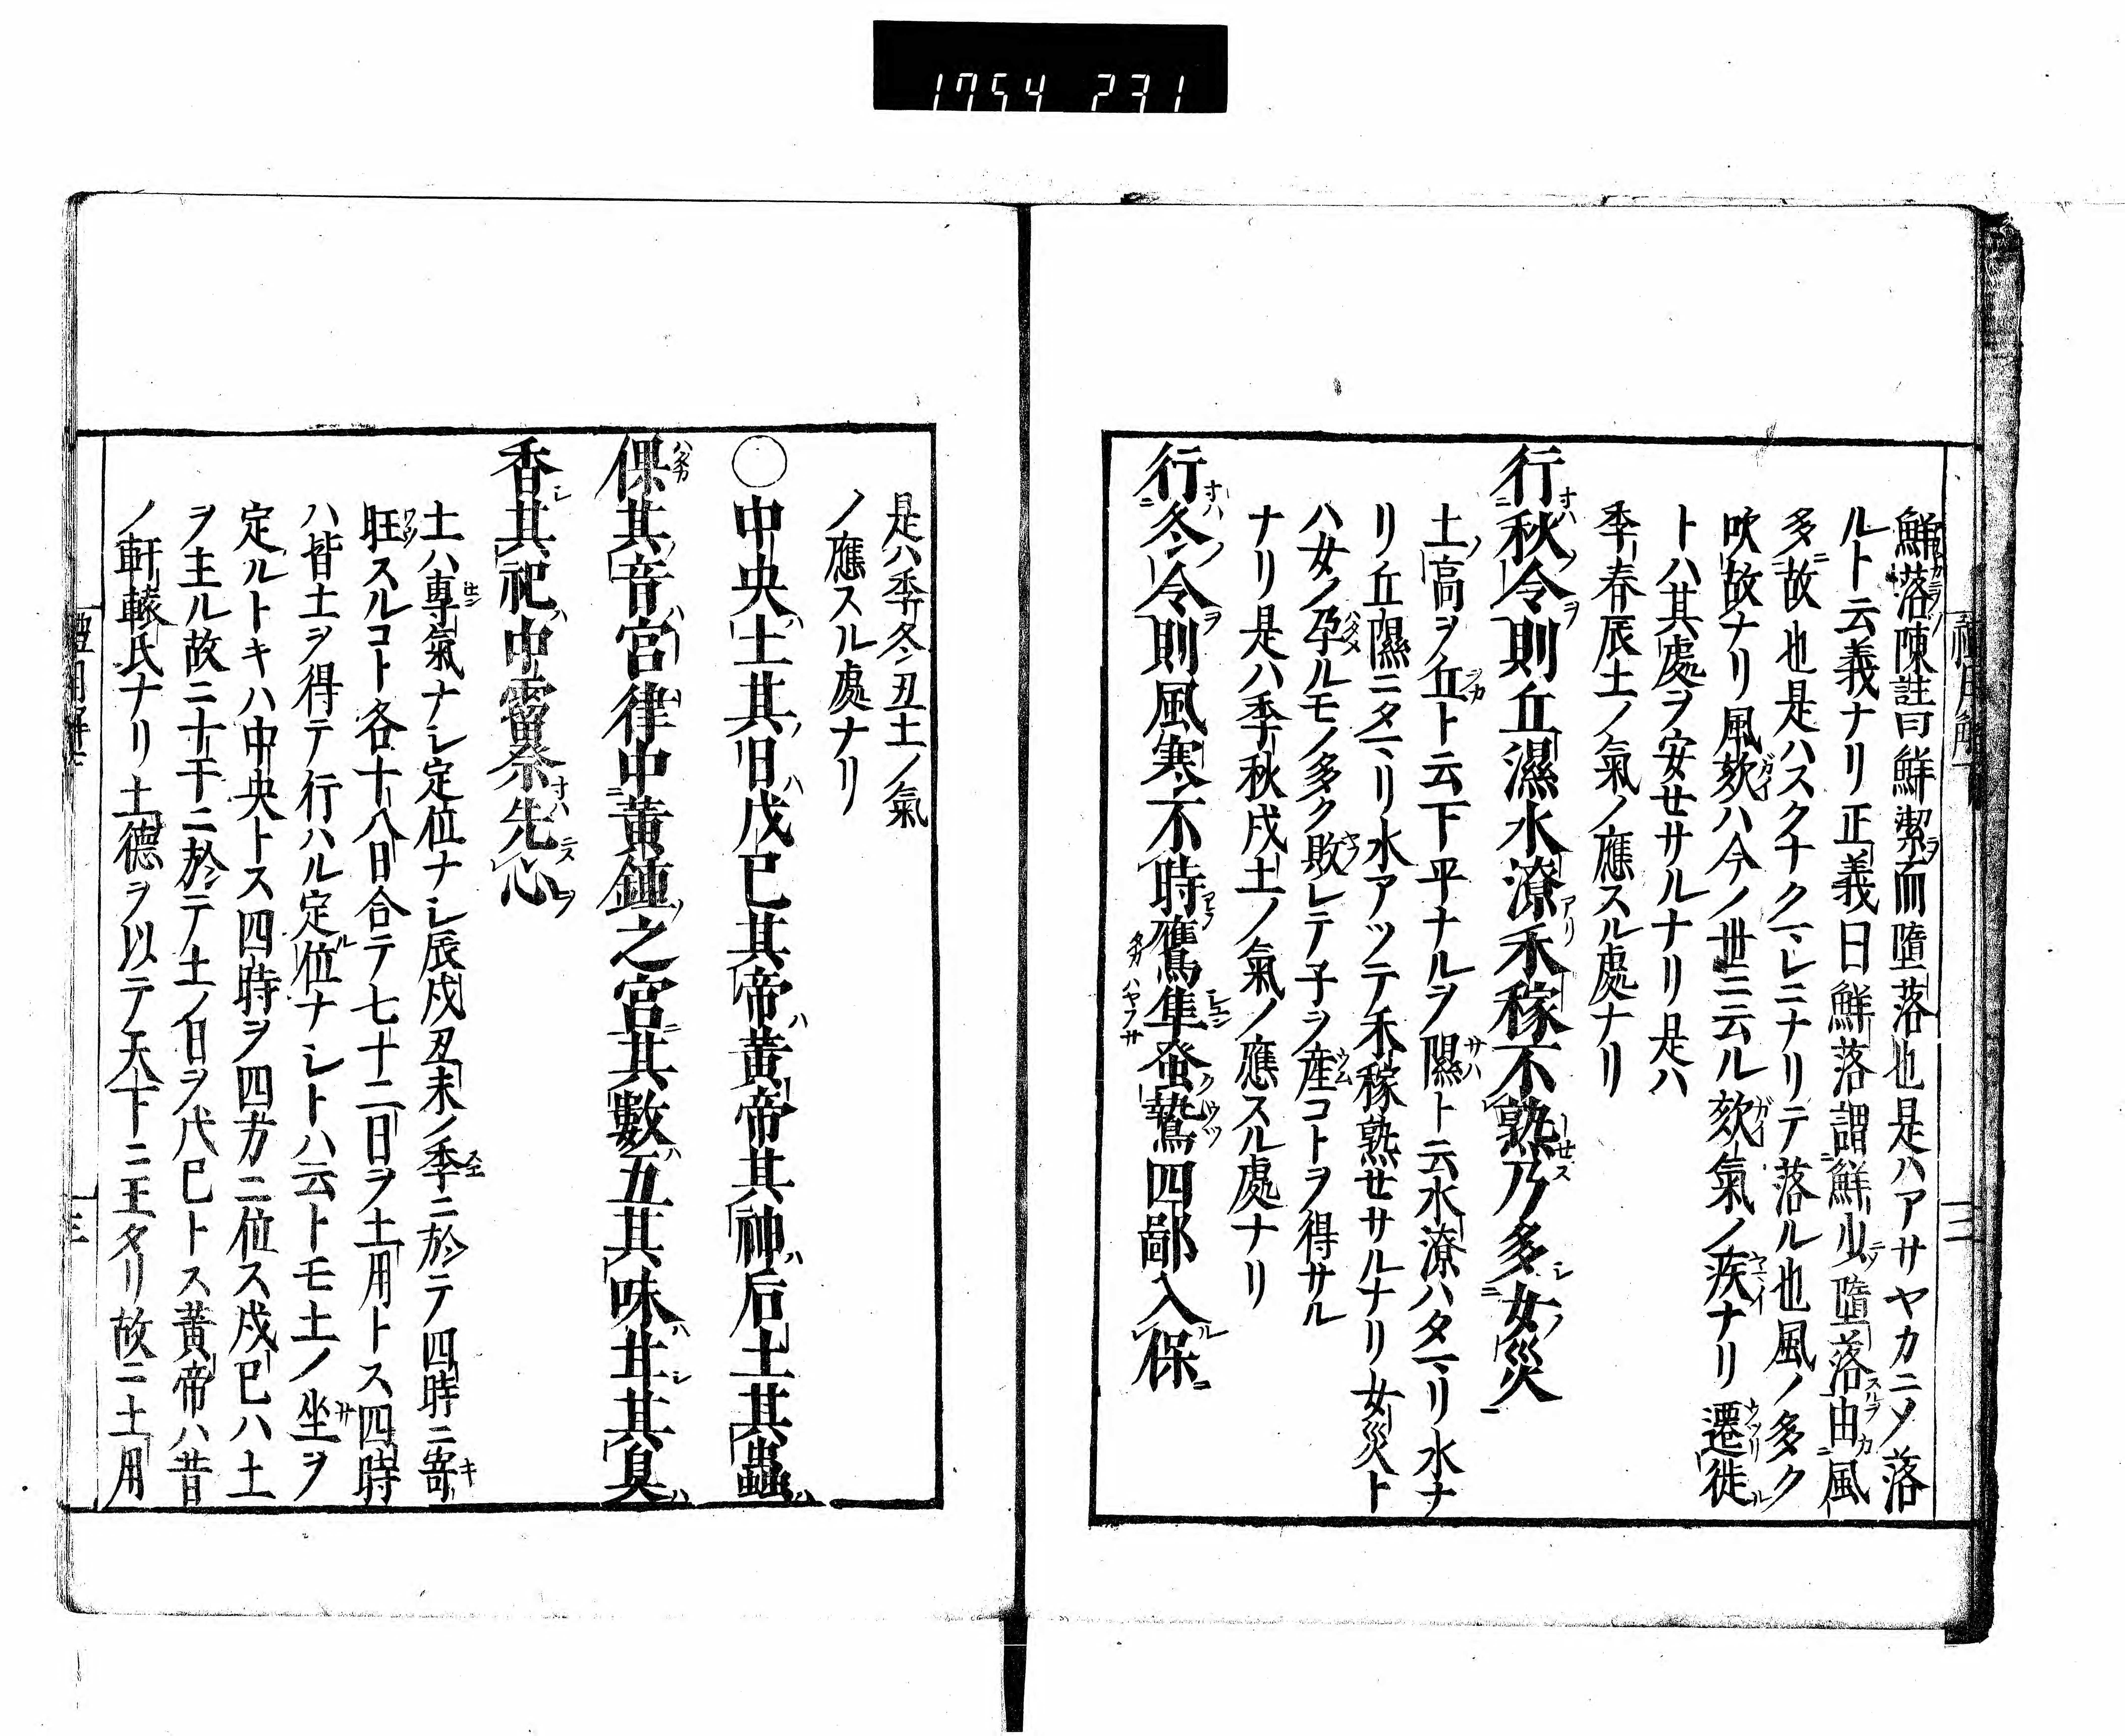 1754 231
鮮落陳註曰鮮潔而墮落也是ハアサヤカニメ落
ルト云義ナリ正義曰鮮落謂鮮少墮落由風
多故也是ハスクナクマレニナリテ落ル也風ノ多ク
吹故ナリ風欬ハ今ノ世ニ云ル欬氣ノ疾ナリ遷徙
トハ其處ヲ安セサルナリ是ハ
季春辰土ノ氣ノ應スル處ナリ
行秋令則丘濕水潦禾稼不熟乃多女災
土高ヲ丘ト云下平ナルヲ隰ト云水潦ハタマリ水ナ
リ丘隰ニタマリ水アツテ禾稼熟セサルナリ女災ト
ハ女ノ孕ルモノ多ク敗レテ子ヲ産コトヲ得サル
ナリ是ハ季秋戌土ノ氣ノ應スル處ナリ
行冬令則風寒不時鷹隼蚤鷙四鄙入保
是ハ季冬丑土ノ氣
ノ應スル處ナリ
○中央土其日戊巳其帝黃帝其神后土其蟲
倮其音宮律中黃鍾之宮其數五其味甘其臭
香其祀中霤祭先心
土ハ專氣ナシ定位ナシ辰戌丑未ノ季ニ於テ四時ニ寄
旺スルコト各十八日合テ七十二日ヲ土用トス四時
ハ皆土ヲ得テ行ハル定位ナシトハ云トモ土ノ坐ヲ
定ルトキハ中央トス四時ヲ四方ニ位ス戊巳ハ土
ヲ主ル故ニ十干ニ於テ土ノ日ヲ戊巳トス黃帝ハ昔
ノ軒轅氏ナリ土德ヲ以テ天下ニ王タリ故ニ土用